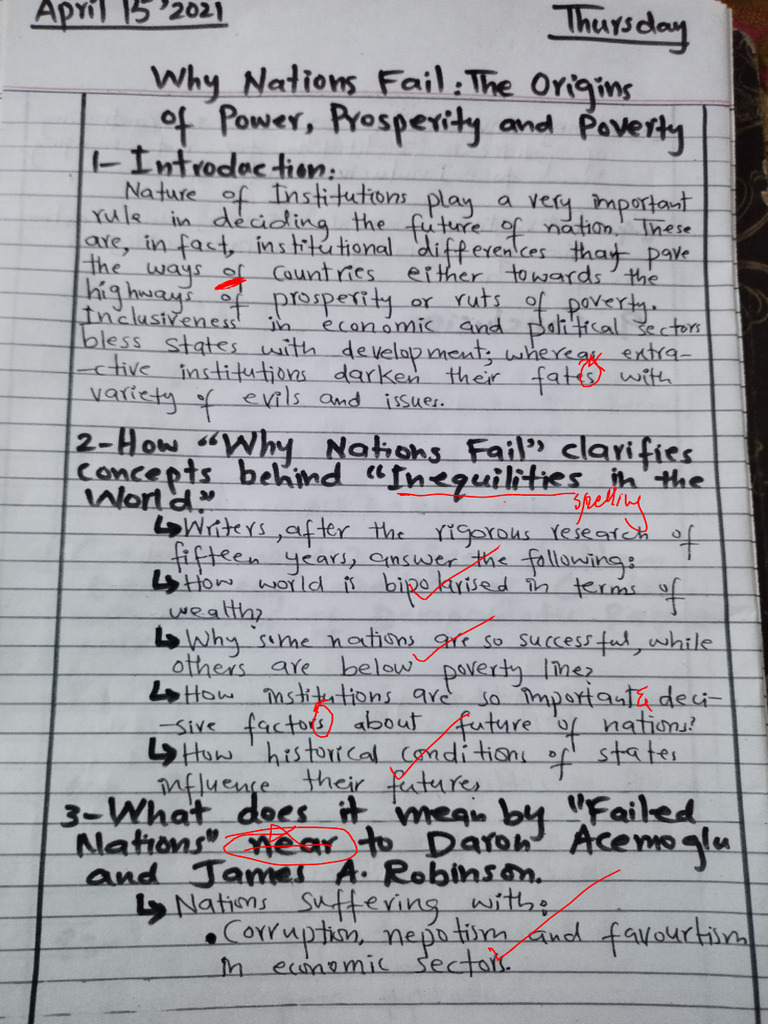 April 15, 2021 Thursday
Why Nations Fail: The Origins
of Power, Prosperity and Poverty
1- Introdaction:
Nature of Institutions play a very important
rule in deciding the future of nation. These
are, in fact, institutional differences that pave
the ways of countries either towards the
highways of prosperity or ruts of poverty.
Inclusiveness in economic and political sectors
bless states with development; whereas extra-
-ctive institutions darken their fates with
variety of evils and issues.
2- How "Why Nations Fail" clarifies
concepts behind "Inequilities in the
World."
spelling
↳ Writers, after the rigorous research of
fifteen years, answer the following:
↳ How world is bipolarised in terms of
wealth?
↳ Why some nations are so successful, while
others are below poverty line?
↳ How institutions are so important & deci-
-sive factors about future of nations?
↳ How historical conditions of states
influence their future,
3- What does it mean by "Failed
Nations" near to Daron Acemoglu
and James A. Robinson.
↳ Nations suffering with:
• Corruption, nepotism and favourtism
in economic sectors.